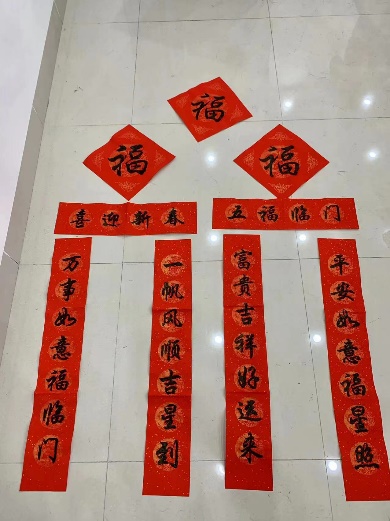 福
福
福
喜迎新春
五福临门
万事如意福临门
一帆风顺吉星到
富贵吉祥好运来
平安如意福星照